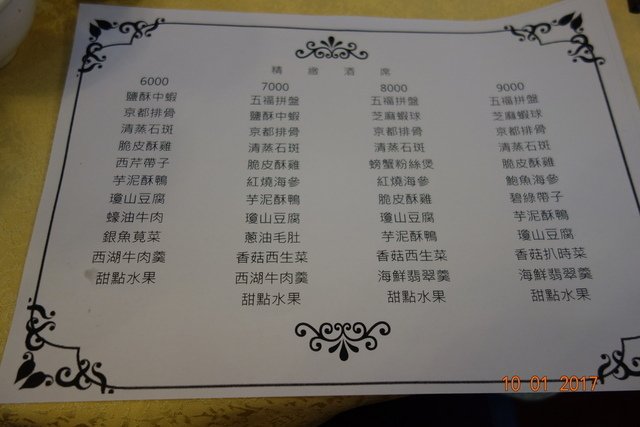 精緻酒席
6000
鹽酥中蝦
京都排骨
清蒸石斑
脆皮酥雞
西芹帶子
芋泥酥鴨
瓊山豆腐
蠔油牛肉
銀魚莧菜
西湖牛肉羹
甜點水果
7000
五福拼盤
鹽酥中蝦
京都排骨
清蒸石斑
脆皮酥雞
紅燒海參
芋泥酥鴨
瓊山豆腐
蔥油毛肚
香菇西生菜
西湖牛肉羹
甜點水果
8000
五福拼盤
芝麻蝦球
京都排骨
清蒸石斑
螃蟹粉絲煲
紅燒海參
脆皮酥雞
瓊山豆腐
芋泥酥鴨
香菇西生菜
海鮮翡翠羹
甜點水果
9000
五福拼盤
芝麻蝦球
京都排骨
清蒸石斑
脆皮酥雞
鮑魚海參
碧綠帶子
芋泥酥鴨
瓊山豆腐
香菇扒時菜
海鮮翡翠羹
甜點水果
10 01 2017